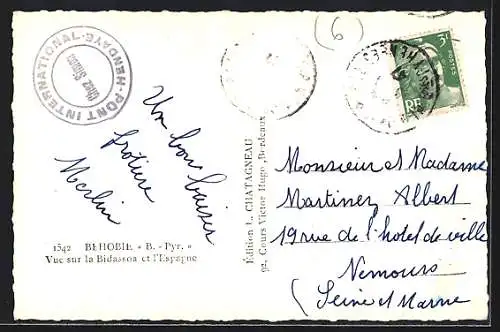 HENDAYE - PONT INTERNATIONAL
Chez
6
3F
POSTES
RF
Un bon baiser
Merlin
1542 BEHOBIE « B. - Pyr. »
Vue sur la Bidassoa et l'Espagne
Edition L. CHATAGNEAU
92, Cours Victor Hugo, Bordeaux
Monsieur et Madame
Martinez Albert
19 rue de l'hotel de ville
Nemours
(Seine et Marne